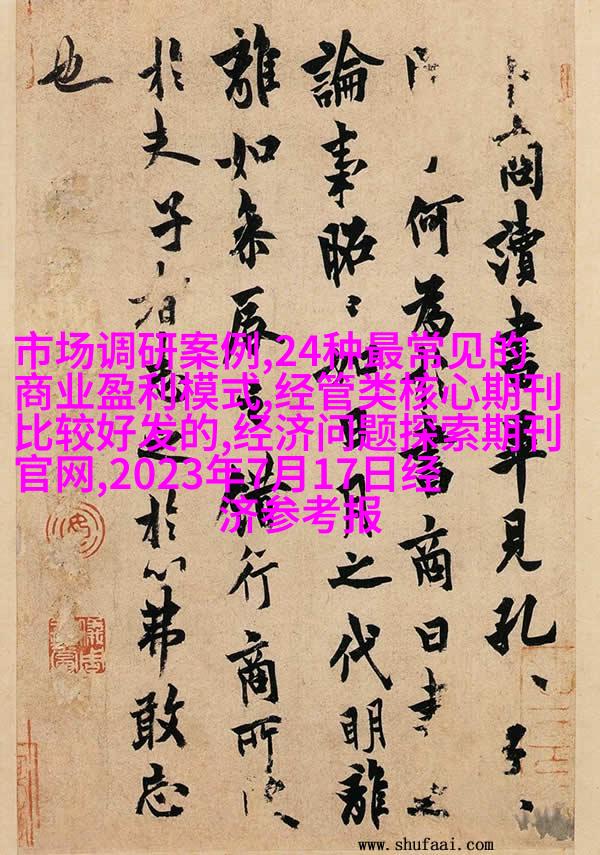 市场调研案例,24种最常见的
商业盈利模式,经管类核心期刊
比较好发的,经济问题探索期刊
官网,2023年7月17日经
济参考报
卜商讀書畢見孔、子、
何為書商曰書之
論事昭〻如日月之代明離
離如參辰之錯行商所
於夫子志之於心弗敢忘
也
www.shufaai.com